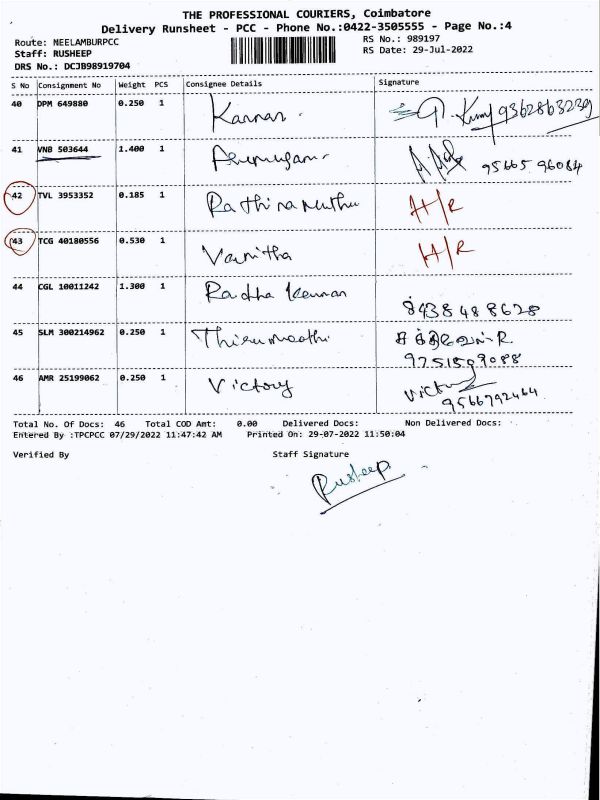 THE PROFESSIONAL COURIERS, Coimbatore
Delivery Runsheet - PCC - Phone No.:0422-3505555 - Page No.:4
Route: NEELAMBURPCC
RS No.: 989197
Staff: RUSHEEP
RS Date: 29-Jul-2022
DRS No.: DCJB98919704
S No Consignment No Weight PCS Consignee Details Signature
40 DPM 649880 0.250 1 Kannan 9362863239
41 VNB 503644 1.400 1 Arumugam 95665 96084
42 TVL 3953352 0.185 1 Rathinamuthu H/R
43 TCG 40180556 0.530 1 Vanitha H/R
44 CGL 10011242 1.300 1 Radha Kannan 8438488628
45 SLM 300214962 0.250 1 Thirumoothi
9751509088
46 AMR 25199062 0.250 1 Victory Victory
9566792464
Total No. Of Docs: 46 Total COD Amt: 0.00 Delivered Docs: Non Delivered Docs:
Entered By :TPCPCC 07/29/2022 11:47:42 AM Printed On: 29-07-2022 11:50:04
Verified By Staff Signature
Rusheep